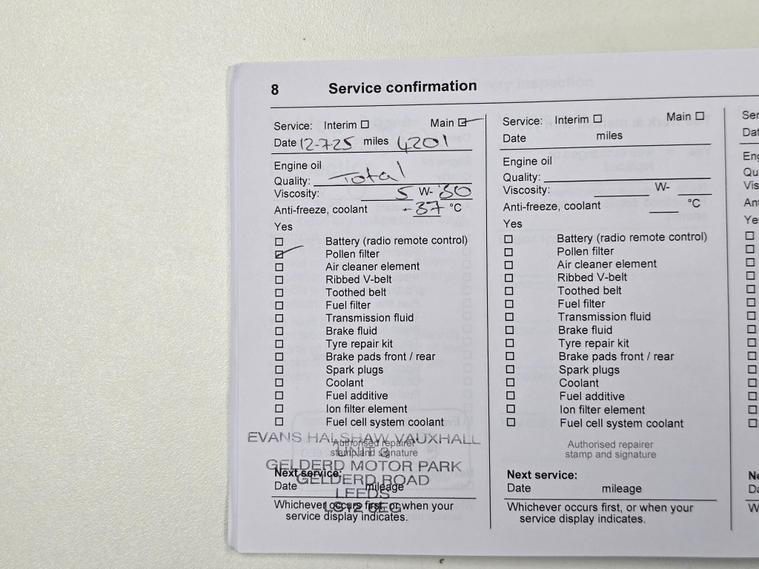 8 Service confirmation
Service: Interim ☐ Main ☑
Date 12-7-25 miles 4201
Engine oil
Quality: Total
Viscosity: 5 W- 30
Anti-freeze, coolant -37 °C
Yes
☐ Battery (radio remote control)
☑ Pollen filter
☐ Air cleaner element
☐ Ribbed V-belt
☐ Toothed belt
☐ Fuel filter
☐ Transmission fluid
☐ Brake fluid
☐ Tyre repair kit
☐ Brake pads front / rear
☐ Spark plugs
☐ Coolant
☐ Fuel additive
☐ Ion filter element
☐ Fuel cell system coolant
EVANS HALSHAW VAUXHALL
Authorised repairer
stamp and signature
GELDERD MOTOR PARK
Next service:
GELDERD ROAD
Date mileage
LEEDS
Whichever occurs first, or when your
service display indicates.
Service: Interim ☐ Main ☐
Date miles
Engine oil
Quality:
Viscosity: W-
Anti-freeze, coolant °C
Yes
☐ Battery (radio remote control)
☐ Pollen filter
☐ Air cleaner element
☐ Ribbed V-belt
☐ Toothed belt
☐ Fuel filter
☐ Transmission fluid
☐ Brake fluid
☐ Tyre repair kit
☐ Brake pads front / rear
☐ Spark plugs
☐ Coolant
☐ Fuel additive
☐ Ion filter element
☐ Fuel cell system coolant
Authorised repairer
stamp and signature
Next service:
Date mileage
Whichever occurs first, or when your
service display indicates.